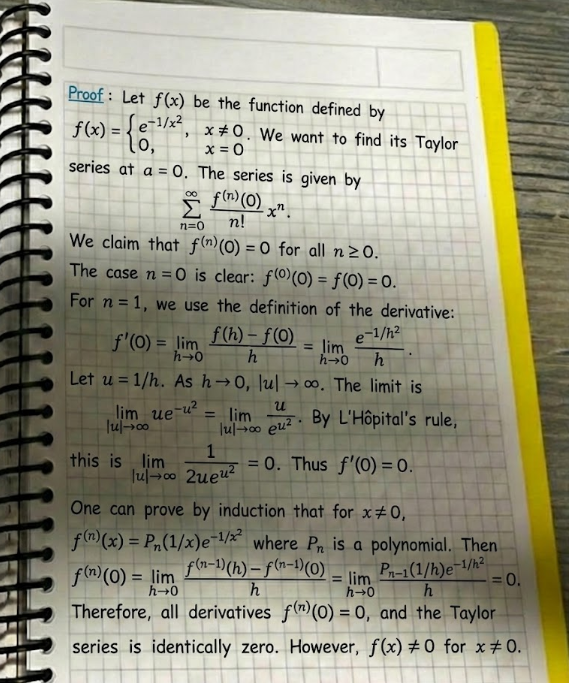 Proof : Let f(x) be the function defined by
f(x) = { e^{-1/x²}, x ≠ 0. We want to find its Taylor
0, x = 0
series at a = 0. The series is given by
∑_{n=0}^{∞} f^{(n)}(0)/n! x^n.
We claim that f^{(n)}(0) = 0 for all n ≥ 0.
The case n = 0 is clear: f^{(0)}(0) = f(0) = 0.
For n = 1, we use the definition of the derivative:
f'(0) = lim_{h→0} (f(h) – f(0))/h = lim_{h→0} e^{-1/h²}/h.
Let u = 1/h. As h → 0, |u| → ∞. The limit is
lim_{|u|→∞} ue^{-u²} = lim_{|u|→∞} u/e^{u²}. By L'Hôpital's rule,
this is lim_{|u|→∞} 1/(2ue^{u²}) = 0. Thus f'(0) = 0.
One can prove by induction that for x ≠ 0,
f^{(n)}(x) = P_n(1/x)e^{-1/x²} where P_n is a polynomial. Then
f^{(n)}(0) = lim_{h→0} (f^{(n-1)}(h) – f^{(n-1)}(0))/h = lim_{h→0} P_{n-1}(1/h)e^{-1/h²}/h = 0.
Therefore, all derivatives f^{(n)}(0) = 0, and the Taylor
series is identically zero. However, f(x) ≠ 0 for x ≠ 0.